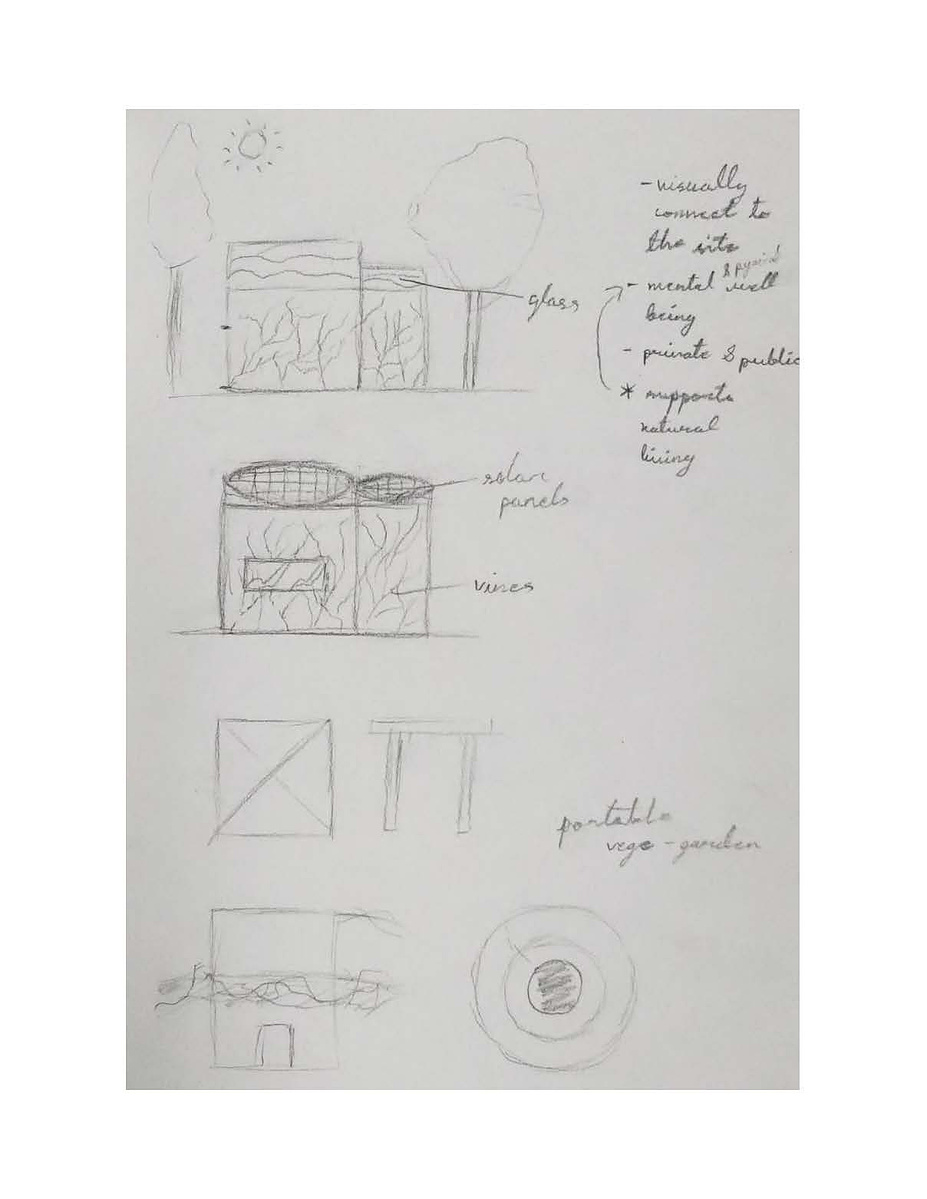 - visually
connect to
the site
&
- mental well
being
glass
- private & public
* supports
natural
living
solar
panels
vines
portable
vege - garden